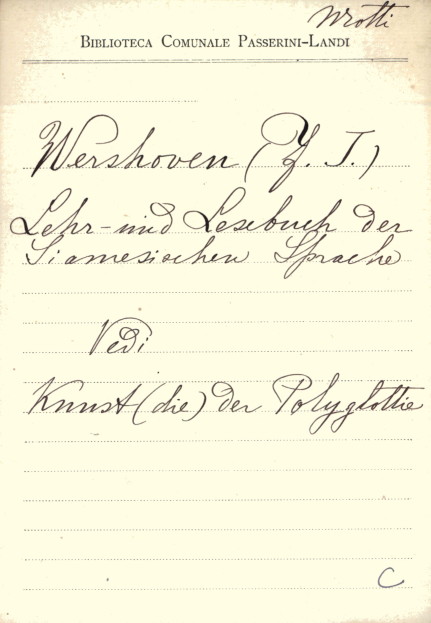 Wrotti
BIBLIOTECA COMUNALE PASSERINI-LANDI
Wershoven (F. J.)
Lehr- und Lesebuch der
Siamesischen Sprache
Vedi
Kunst (die) der Polyglottie
C